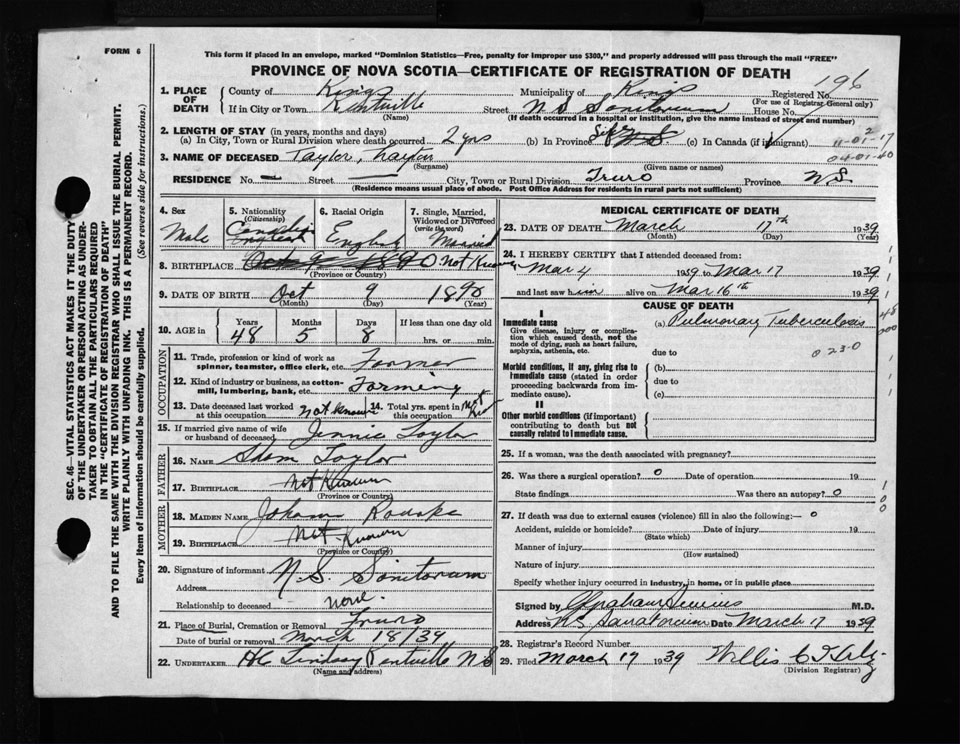 FORM 6
This form if placed in an envelope, marked "Dominion Statistics—Free, penalty for improper use $300," and properly addressed will pass through the mail "FREE"
PROVINCE OF NOVA SCOTIA—CERTIFICATE OF REGISTRATION OF DEATH
196
1. PLACE OF DEATH
County of Kings
Municipality of Kings
Registered No.
(For use of Registrar General only)
If in City or Town Kentville
(Name)
Street N S Sanitorium House No.
(If death occurred in a hospital or institution, give the name instead of street and number)
2. LENGTH OF STAY (in years, months and days)
(a) In City, Town or Rural Division where death occurred 2 yrs
(b) In Province Life N.S.
(c) In Canada (if immigrant)
11-01-17
04-01-40
3. NAME OF DECEASED Taylor,
(Surname)
(Given name or names)
RESIDENCE No. — Street — City, Town or Rural Division Truro Province N.S.
(Residence means usual place of abode. Post Office Address for residents in rural parts not sufficient)
4. Sex
Male
5. Nationality
(Citizenship)
Canadian
English
6. Racial Origin
English
7. Single, Married, Widowed or Divorced
(write the word)
Married
8. BIRTHPLACE Oct 9 1890 Not Known
(Province or Country)
9. DATE OF BIRTH Oct 9 1890
(Month) (Day) (Year)
10. AGE in
Years Months Days If less than one day old
48 5 8 hrs. or min.
OCCUPATION
11. Trade, profession or kind of work as spinner, teamster, office clerk, etc. Farmer
12. Kind of industry or business, as cotton-mill, lumbering, bank, etc. Farming
13. Date deceased last worked at this occupation Not Known
14. Total yrs. spent in this occupation Not Known
15. If married give name of wife or husband of deceased Jennie Taylor
FATHER
16. NAME Taylor
17. BIRTHPLACE Not Known
(Province or Country)
MOTHER
18. MAIDEN NAME
19. BIRTHPLACE Not Known
(Province or Country)
20. Signature of informant N. S. Sanitorium
Address
Relationship to deceased none.
21. Place of Burial, Cremation or Removal Truro
Date of burial or removal March 18/39
22. UNDERTAKER Lindsay Kentville N S
(Name and address)
MEDICAL CERTIFICATE OF DEATH
23. DATE OF DEATH March 17th 1939
(Month) (Day) (Year)
24. I HEREBY CERTIFY that I attended deceased from:
Mar 4 1939 to Mar 17 1939
and last saw him alive on Mar 16th 1939
CAUSE OF DEATH
I
Immediate cause
Give disease, injury or complication which caused death, not the mode of dying, such as heart failure, asphyxia, asthenia, etc.
(a) Pulmonary Tuberculosis
due to
023-0
Morbid conditions, if any, giving rise to immediate cause (stated in order proceeding backwards from immediate cause).
(b)
due to
(c)
II
Other morbid conditions (if important) contributing to death but not causally related to immediate cause.
25. If a woman, was the death associated with pregnancy?
26. Was there a surgical operation? 0 Date of operation 19
State findings Was there an autopsy? 0
27. If death was due to external causes (violence) fill in also the following:— 0
Accident, suicide or homicide? Date of injury 19
(State which)
Manner of injury
(How sustained)
Nature of injury
Specify whether injury occurred in industry, in home, or in public place
Signed by M.D.
Address N S Sanatorium Date March 17 1939
28. Registrar's Record Number
29. Filed March 17 1939 Willis C
(Division Registrar)
SEC. 46—VITAL STATISTICS ACT MAKES IT THE DUTY
OF THE UNDERTAKER OR PERSON ACTING AS UNDER-
TAKER TO OBTAIN ALL THE PARTICULARS REQUIRED
IN THE "CERTIFICATE OF REGISTRATION OF DEATH"
AND TO FILE THE SAME WITH THE DIVISION REGISTRAR WHO SHALL ISSUE THE BURIAL PERMIT.
WRITE PLAINLY WITH UNFADING INK. THIS IS A PERMANENT RECORD.
Every item of information should be carefully supplied. (See reverse side for instructions.)